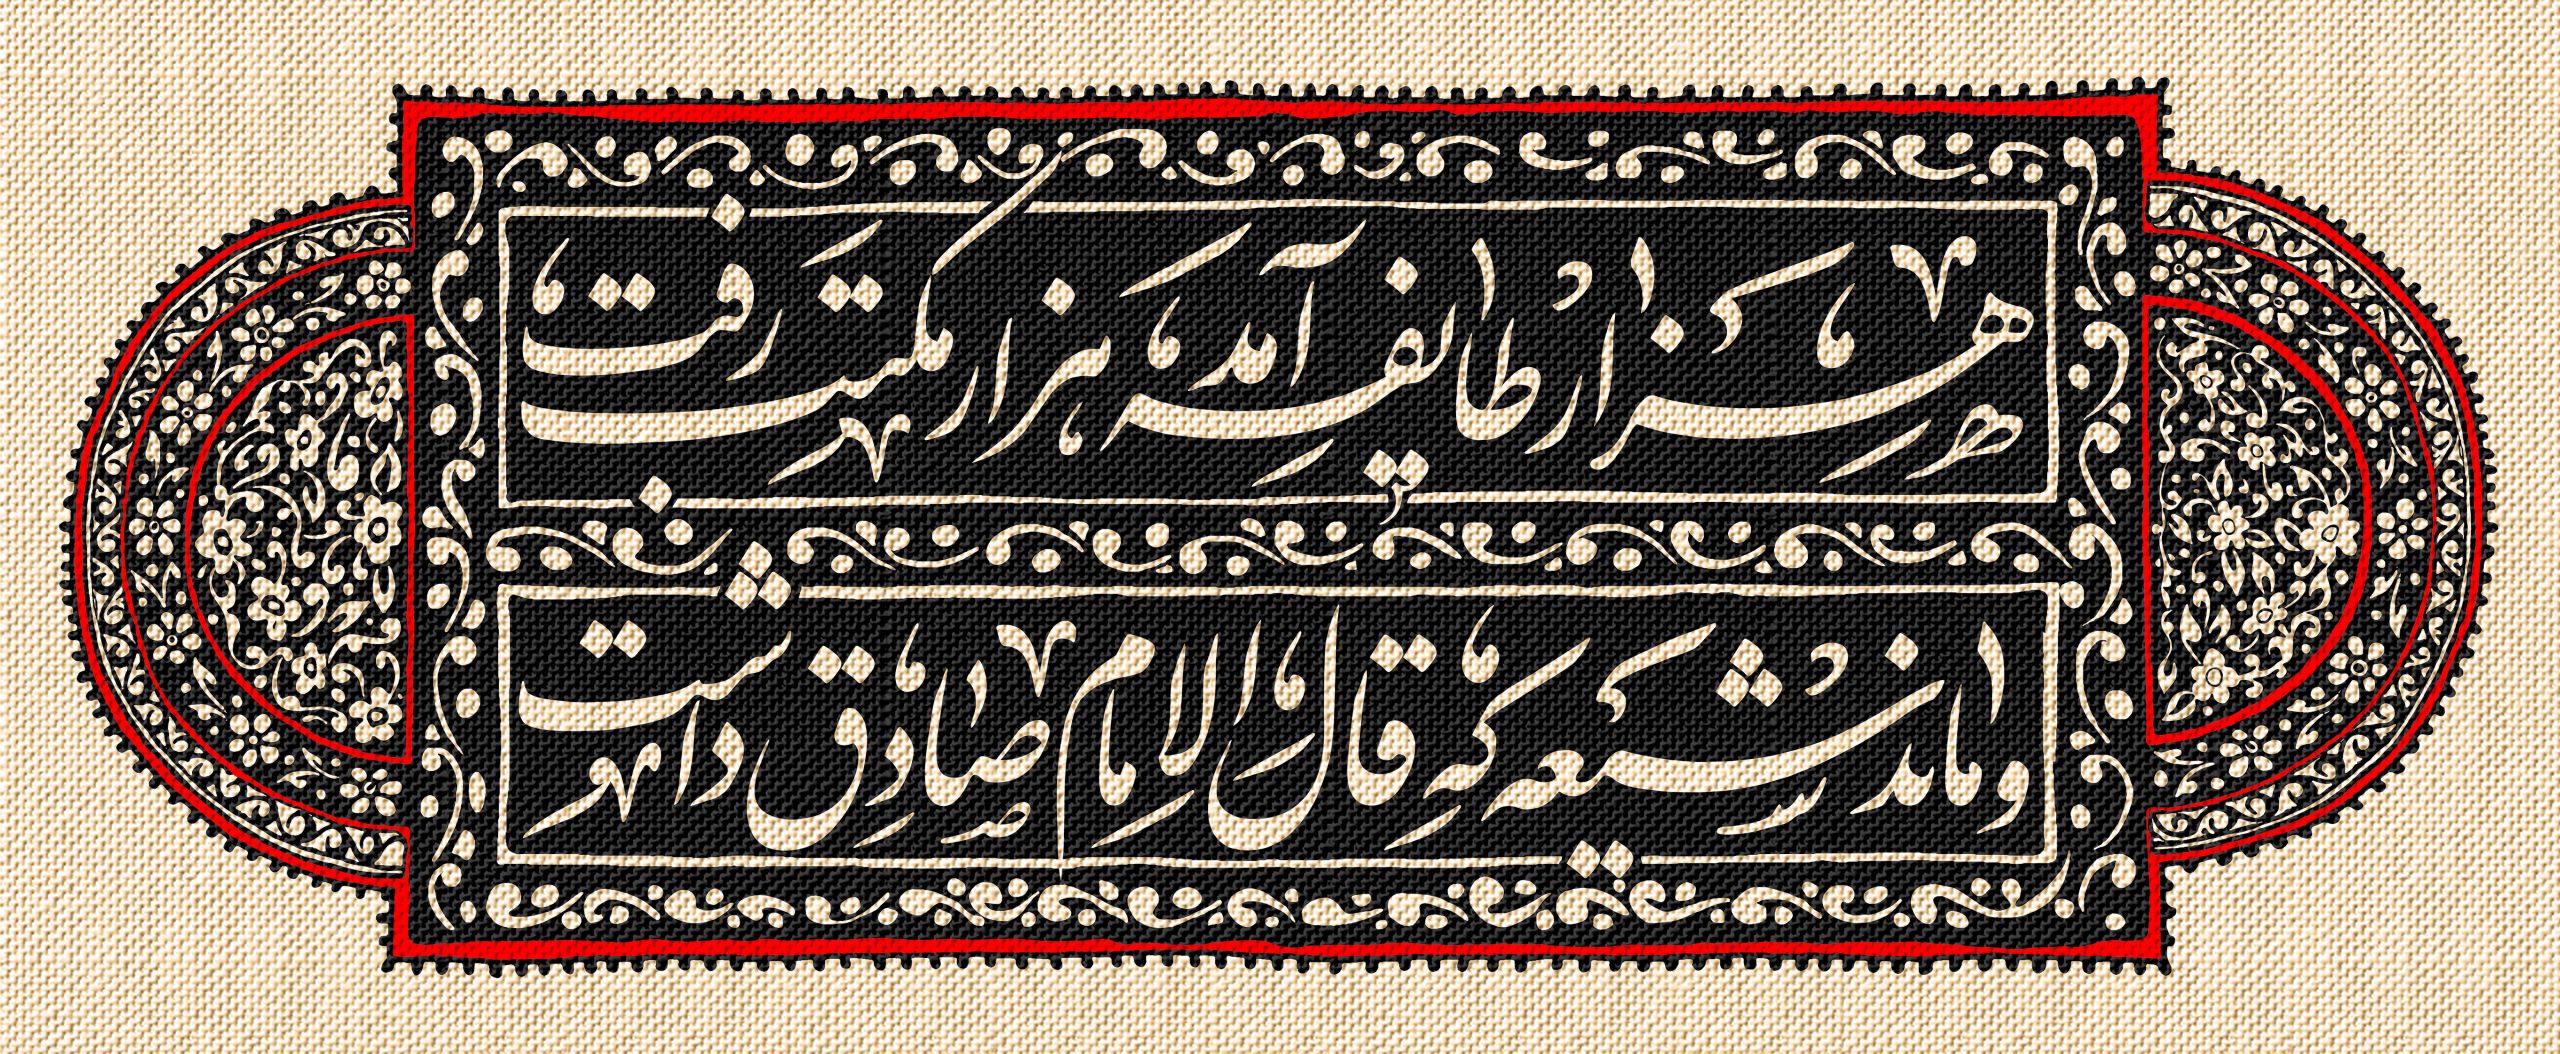 هزار طائفه آمد هزار مکتب رفت
و ماند شیعه که قال الامام صادق داشت